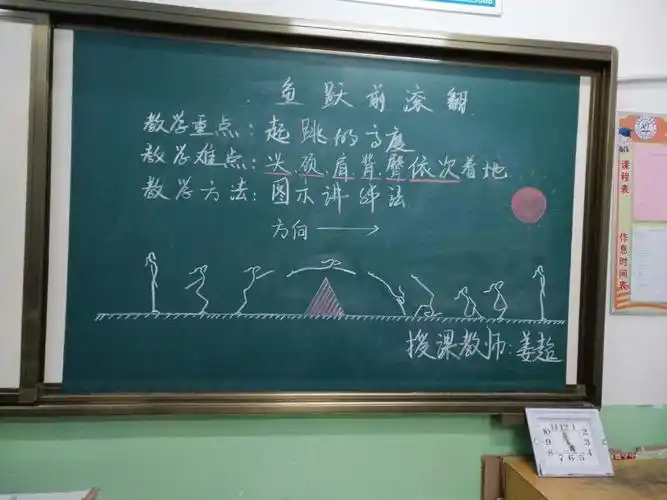 鱼跃前滚翻
教学重点：起跳的高度
教学难点：头、颈、肩、背、臀依次着地
教学方法：图示讲解法
方向
授课教师：姜超
课程表
作息时间表
11 12 1
10 2
9 3
8 4
7 6 5